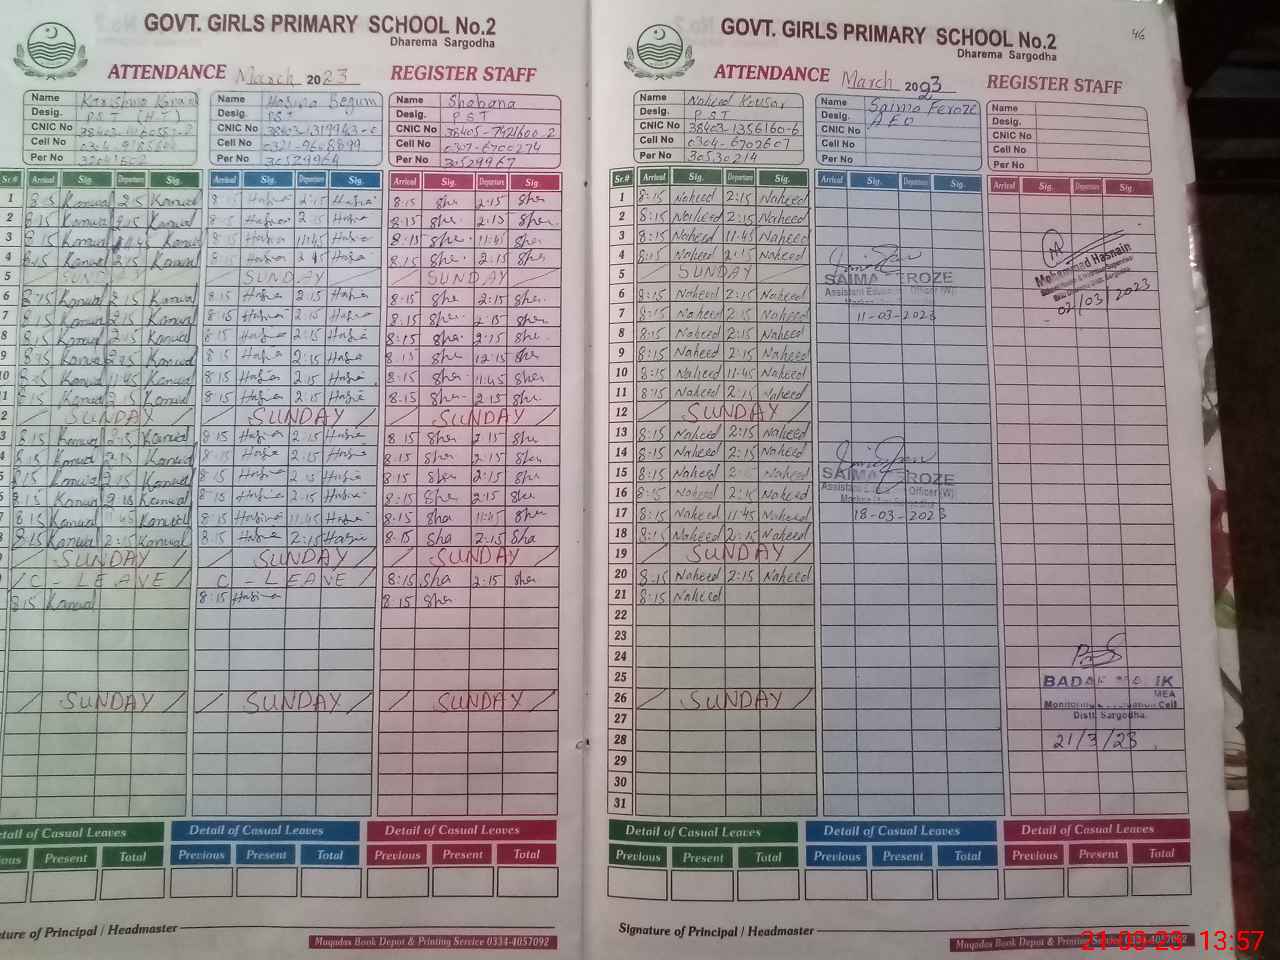 GOVT. GIRLS PRIMARY SCHOOL No.2
Dharema Sargodha
ATTENDANCE March 2023 REGISTER STAFF
Name Name Hasina Begum Name Shabana
Desig. PST (H.T) Desig. PST Desig. PST
CNIC No CNIC No CNIC No 38405-7421600-2
Cell No Cell No 0321-9608899 Cell No 0307-6700274
Per No Per No 30529964 Per No 30529967
Sr.# Arrival Sig. Departure Sig. Arrival Sig. Departure Sig. Arrival Sig. Departure Sig.
1 8:15 Kanwal 2:15 Kanwal 8:15 Hasina 2:15 Hasina 8:15 Sha 2:15 Sha
2 8:15 Kanwal 2:15 Kanwal 8:15 Hasina 2:15 Hasina 8:15 Sha 2:15 Sha
3 8:15 Kanwal 11:45 Kanwal 8:15 Hasina 11:45 Hasina 8:15 Sha 11:45 Sha
4 8:15 Kanwal 2:15 Kanwal 8:15 Hasina Hasina 8:15 Sha 2:15 Sha
5 SUNDAY SUNDAY SUNDAY
6 8:15 Kanwal 2:15 Kanwal 8:15 Hasina 2:15 Hasina 8:15 Sha 2:15 Sha
7 8:15 Kanwal 2:15 Kanwal 8:15 Hasina 2:15 Hasina 8:15 Sha 2:15 Sha
8 8:15 Kanwal 2:15 Kanwal 8:15 Hasina 2:15 Hasina 8:15 Sha 2:15 Sha
9 8:15 Kanwal 2:15 Kanwal 8:15 Hasina 2:15 Hasina 8:15 Sha 12:15 Sha
10 8:15 Kanwal 11:45 Kanwal 8:15 Hasina 2:15 Hasina 8:15 Sha 11:45 Sha
1 8:15 Kanwal 2:15 Kanwal 8:15 Hasina 2:15 Hasina 8:15 Sha 2:15 Sha
2 SUNDAY SUNDAY SUNDAY
3 8:15 Kanwal 2:15 Kanwal 8:15 Hasina 2:15 Hasina 8:15 Sha 2:15 Sha
4 8:15 Kanwal 2:15 Kanwal 8:15 Hasina 2:15 Hasina 8:15 Sha 2:15 Sha
5 8:15 Kanwal 2:15 Kanwal 8:15 Hasina 2:15 Hasina 8:15 Sha 2:15 Sha
6 8:15 Kanwal 2:15 Kanwal 8:15 Hasina 2:15 Hasina 8:15 Sha 2:15 Sha
7 8:15 Kanwal 11:45 Kanwal 8:15 Hasina 11:45 Hasina 8:15 Sha 11:45 Sha
8 8:15 Kanwal 2:15 Kanwal 8:15 Hasina 2:15 Hasina 8:15 Sha 2:15 Sha
SUNDAY SUNDAY SUNDAY
C - LEAVE C - LEAVE 8:15 Sha 2:15 Sha
8:15 Kanwal 8:15 Hasina 8:15 Sha
SUNDAY SUNDAY SUNDAY
Detail of Casual Leaves Detail of Casual Leaves Detail of Casual Leaves
Present Total Previous Present Total Previous Present Total
Signature of Principal / Headmaster
Muqadas Book Depot & Printing Service 0334-4057092
46
GOVT. GIRLS PRIMARY SCHOOL No.2
Dharema Sargodha
ATTENDANCE March 2023 REGISTER STAFF
Name Naheed Kousar Name Saima Feroze Name
Desig. PST Desig. AEO Desig.
CNIC No 38403-1356160-6 CNIC No CNIC No
Cell No 0304-6707607 Cell No Cell No
Per No 30530214 Per No Per No
Sr.# Arrival Sig. Departure Sig. Arrival Sig. Departure Sig. Arrival Sig. Departure Sig
1 8:15 Naheed 2:15 Naheed
2 8:15 Naheed 2:15 Naheed
3 8:15 Naheed 11:45 Naheed
4 8:15 Naheed 2:15 Naheed
5 SUNDAY
6 8:15 Naheed 2:15 Naheed
7 8:15 Naheed 2:15 Naheed
8 8:15 Naheed 2:15 Naheed
9 8:15 Naheed 2:15 Naheed
10 8:15 Naheed 11:45 Naheed
11 8:15 Naheed 2:15 Naheed
12 SUNDAY
13 8:15 Naheed 2:15 Naheed
14 8:15 Naheed 2:15 Naheed
15 8:15 Naheed Naheed
16 8:15 Naheed 2:15 Naheed
17 8:15 Naheed 11:45 Naheed
18 8:15 Naheed 2:15 Naheed
19 SUNDAY
20 8:15 Naheed 2:15 Naheed
21 8:15 Naheed
22
23
24
25
26 SUNDAY
27
28
29
30
31
SAIMA FEROZE
Assistant Education Officer (W)
11-03-2023
SAIMA FEROZE
Officer (W)
18-03-2023
Mohammad Hasnain
02/03/2023
MEA
Monitoring Cell
Distt. Sargodha.
21/3/23
Detail of Casual Leaves Detail of Casual Leaves Detail of Casual Leaves
Previous Present Total Previous Present Total Previous Present Total
Signature of Principal / Headmaster
Muqadas Book Depot & Printing Service 0334-4057092
21-03-23 13:57